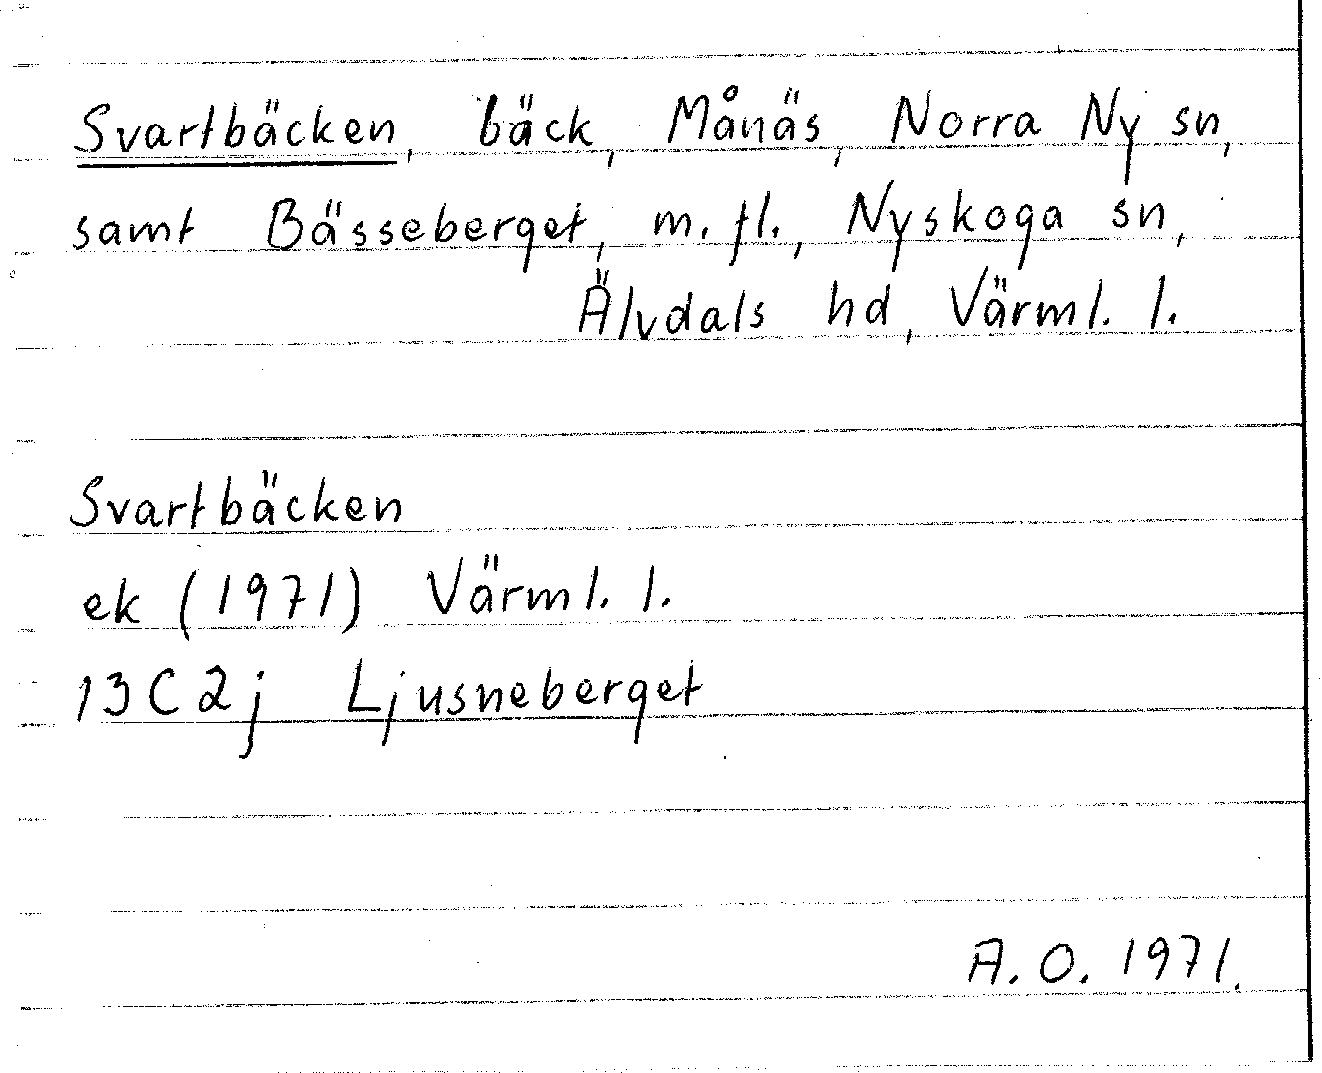 Svartbäcken, bäck, Månäs, Norra Ny sn,
samt Bässeberget, m. fl., Nyskoga sn,
Älvdals hd, Värml. l.
Svartbäcken
ek (1971) Värml. l.
13C2j Ljusneberget
A.O. 1971.